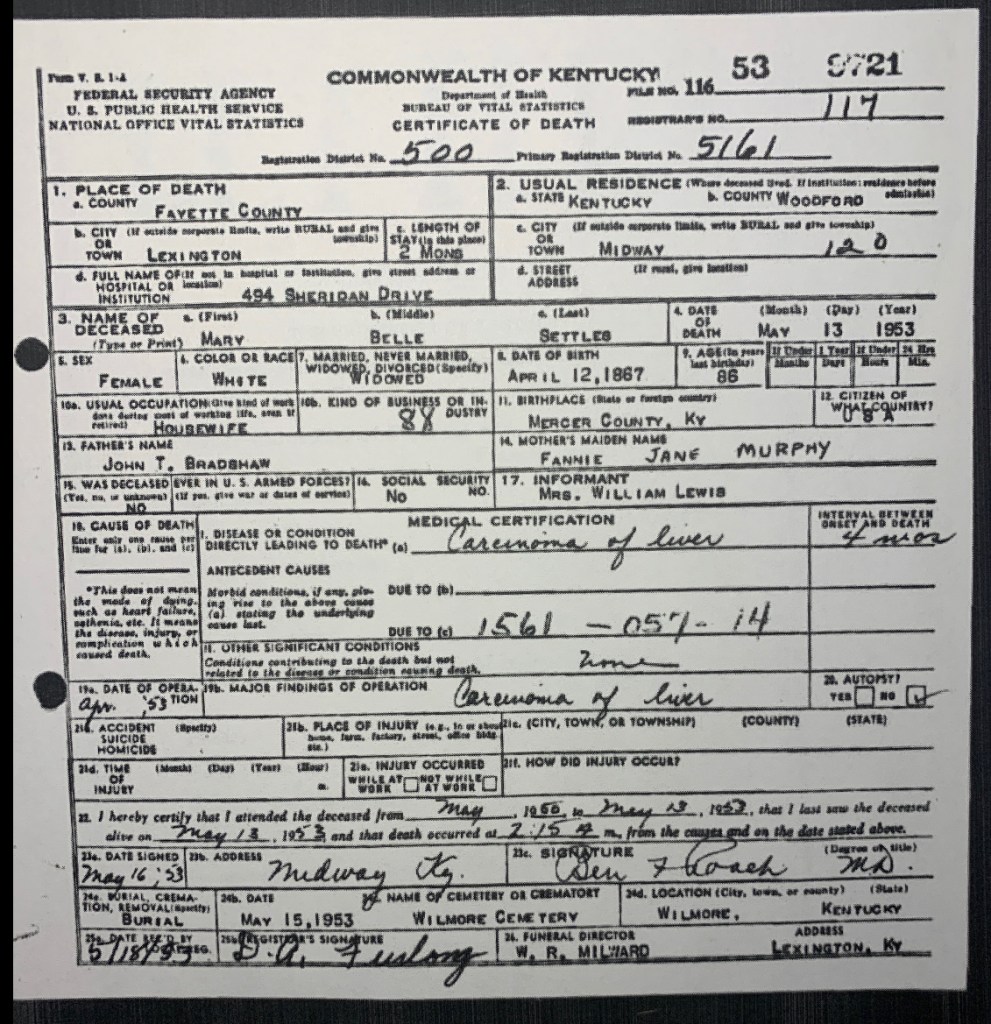 Form V. S. 1-A
COMMONWEALTH OF KENTUCKY
FILE NO. 116 53 9721
FEDERAL SECURITY AGENCY
Department of Health
U. S. PUBLIC HEALTH SERVICE
BUREAU OF VITAL STATISTICS
REGISTRAR'S NO. 117
NATIONAL OFFICE VITAL STATISTICS
CERTIFICATE OF DEATH
Registration District No. 500 Primary Registration District No. 5161
1. PLACE OF DEATH
a. COUNTY
FAYETTE COUNTY
2. USUAL RESIDENCE (Where deceased lived. If institution: residence before admission)
a. STATE KENTUCKY b. COUNTY WOODFORD
b. CITY (If outside corporate limits, write RURAL and give township)
OR
TOWN LEXINGTON
c. LENGTH OF
STAY (in this place)
2 MONS
c. CITY (If outside corporate limits, write RURAL and give township)
OR
TOWN MIDWAY 120
d. FULL NAME OF (If not in hospital or institution, give street address or location)
HOSPITAL OR
INSTITUTION 494 SHERIDAN DRIVE
d. STREET (If rural, give location)
ADDRESS
3. NAME OF DECEASED
(Type or Print)
a. (First) MARY
b. (Middle) BELLE
c. (Last) SETTLES
4. DATE OF DEATH (Month) (Day) (Year)
MAY 13 1953
5. SEX
FEMALE
6. COLOR OR RACE
WHITE
7. MARRIED, NEVER MARRIED,
WIDOWED, DIVORCED (Specify)
WIDOWED
8. DATE OF BIRTH
APRIL 12, 1867
9. AGE (In years last birthday)
86
If Under 1 Year
Months Days
If Under 24 Hrs
Hours Min.
10a. USUAL OCCUPATION (Give kind of work
done during most of working life, even if
retired) HOUSEWIFE
10b. KIND OF BUSINESS OR INDUSTRY
8X
11. BIRTHPLACE (State or foreign country)
MERCER COUNTY, KY
12. CITIZEN OF
WHAT COUNTRY?
U S A
13. FATHER'S NAME
JOHN T. BRADSHAW
14. MOTHER'S MAIDEN NAME
FANNIE JANE MURPHY
15. WAS DECEASED EVER IN U. S. ARMED FORCES?
(Yes, no, or unknown) (If yes, give war or dates of service)
NO
16. SOCIAL SECURITY NO.
NO
17. INFORMANT
MRS. WILLIAM LEWIS
18. CAUSE OF DEATH
Enter only one cause per
line for (a), (b), and (c)
MEDICAL CERTIFICATION
INTERVAL BETWEEN
ONSET AND DEATH
I. DISEASE OR CONDITION
DIRECTLY LEADING TO DEATH* (a) Carcinoma of liver
4 mos
ANTECEDENT CAUSES
*This does not mean
the mode of dying,
such as heart failure,
asthenia, etc. It means
the disease, injury, or
complication which
caused death.
Morbid conditions, if any, giving rise to the above cause
(a) stating the underlying
cause last.
DUE TO (b)
DUE TO (c) 1561 - 057 - 14
II. OTHER SIGNIFICANT CONDITIONS
Conditions contributing to the death but not
related to the disease or condition causing death.
none
19a. DATE OF OPERATION
Apr. '53
19b. MAJOR FINDINGS OF OPERATION
Carcinoma of liver
20. AUTOPSY?
YES NO ✓
21a. ACCIDENT (Specify)
SUICIDE
HOMICIDE
21b. PLACE OF INJURY (e.g., in or about
home, farm, factory, street, office bldg.
etc.)
21c. (CITY, TOWN, OR TOWNSHIP) (COUNTY) (STATE)
21d. TIME (Month) (Day) (Year) (Hour)
OF
INJURY m.
21e. INJURY OCCURRED
WHILE AT WORK NOT WHILE AT WORK
21f. HOW DID INJURY OCCUR?
22. I hereby certify that I attended the deceased from May, 1950, to May 13, 1953, that I last saw the deceased
alive on May 13, 1953 and that death occurred at 2:15 A m., from the causes and on the date stated above.
23a. DATE SIGNED
May 16, '53
23b. ADDRESS
Midway Ky.
23c. SIGNATURE (Degree or title)
Ben F Roach MD.
24a. BURIAL, CREMATION, REMOVAL (Specify)
BURIAL
24b. DATE
MAY 15, 1953
NAME OF CEMETERY OR CREMATORY
WILMORE CEMETERY
24d. LOCATION (City, town, or county) (State)
WILMORE, KENTUCKY
25a. DATE REC'D BY
REG.
25b. REGISTRAR'S SIGNATURE
D. A. Furlong
26. FUNERAL DIRECTOR
W. R. MILWARD
ADDRESS
LEXINGTON, KY